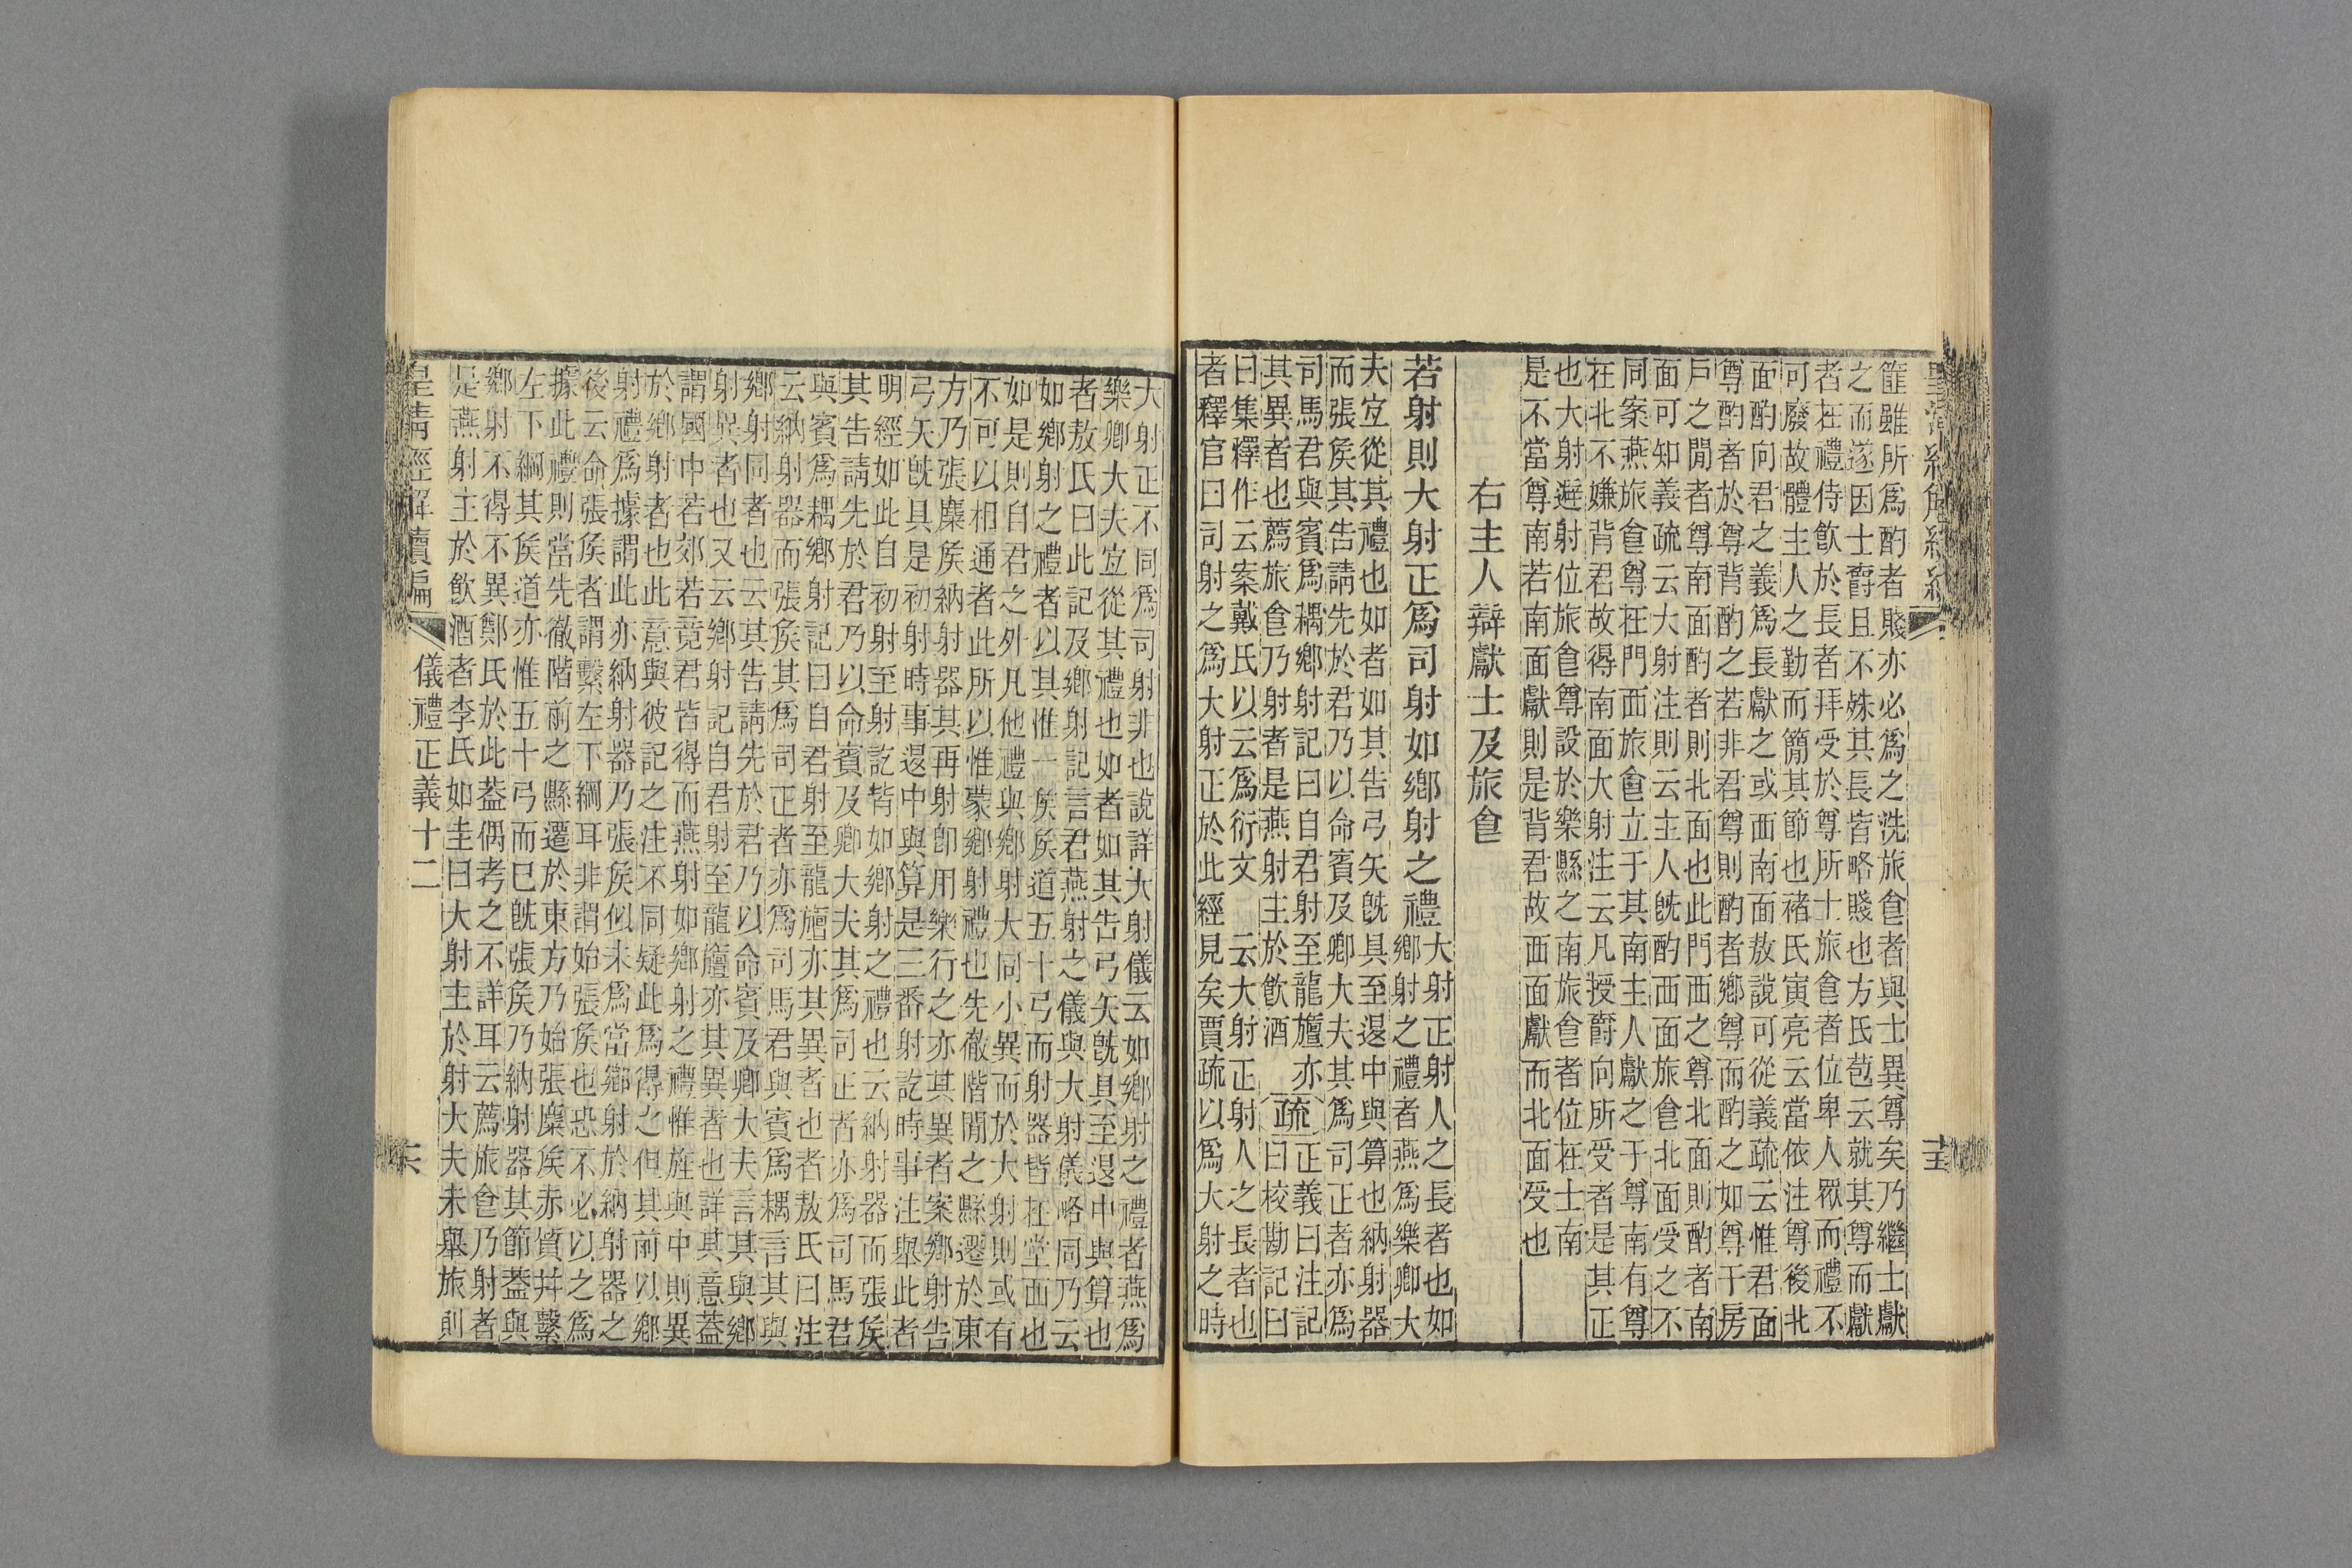 篚雖所爲酌者賤亦必爲之洗旅㑹者與士異尊矣乃繼士獻
之而遂因士爵且不殊其長皆略賤也方氏苞云就其尊而獻
者在禮侍飮於長者拜受於尊所士旅㑹者位卑人眾而禮不
可廢故體主人之勤而簡其節也褚氏寅亮云當依注尊後北
面酌向君之義爲長獻之或西南面敖說可從義疏云惟君面
尊酌者於尊背酌之若非君尊則酌者鄉尊而酌之如尊于房
戶之閒者尊南面酌者則北面也此門西之尊北面則酌者南
面可知義疏云大射注則云主人旣酌西面旅㑹北面受之不
同案燕旅㑹尊在門西旅㑹立于其南主人獻之于尊南有尊
在北不嫌背君故得南面大射注云凡授爵向所受者是其正
也大射避射位旅㑹尊設於樂縣之南旅㑹者位在士南
是不當尊南若南面獻則是背君故西面獻而北面受也
右主人辯獻士及旅㑹
若射則大射正爲司射如鄉射之禮
大射正射人之長者也如
鄉射之禮者燕爲樂卿大
夫宜從其禮也如者如其告弓矢旣具至退中與算也納射器
而張矦其告請先於君乃以命賓及卿大夫其爲司正者亦爲
司馬君與賓爲耦鄉射記曰自君射至龍旜亦
其異者也薦旅㑹乃射者是燕射主於飮酒
疏
正義曰注記
曰校勘記曰
曰集釋作云案戴氏以云爲衍文
云大射正射人之長者也
者釋官曰司射之爲大射正於此經見矣賈疏以爲大射之時
大射正不同爲司射非也說詳大射儀云如鄉射之禮者燕爲
樂卿大夫宜從其禮也如者如其告弓矢旣具至退中與算也
者敖氏曰此記及鄉射記言君燕射之儀與大射儀略同乃云
如鄉射之禮者以其惟一矦矦道五十弓而射器皆在堂西也
如是則自君之外凡他禮與鄉射大同小異而於大射則或有
不可以相通者此所以惟蒙鄉射禮也先徹階閒之縣遷於東
方乃張麋矦納射器其再射卽用樂行之亦其異者案鄉射告
弓矢旣具是初射時事退中與算是三番射訖時事注舉此者
明經如此自初射至射訖皆如鄉射之禮也云納射器而張矦
其告請先於君乃以命賓及卿大夫其爲司正者亦爲司馬君
與賓爲耦鄉射記曰自君射至龍旜亦其異者也者敖氏曰注
云納射器而張矦其爲司正者亦爲司馬君與賓爲耦言其與
鄉射同者也云其告請先於君乃以命賓及卿大夫言其與鄉
射異者也又云鄉射記自君射至龍旜亦其異者也詳其意蓋
謂國中若郊若竟君皆得而燕射如鄉射之禮惟旌與中則異
於鄉射者也此意與彼記之注不同疑此爲得之但其前以鄉
射禮爲據謂此亦納射器乃張矦似未爲當鄉射於納射器之
後云命張矦者謂繫左下綱耳非謂始張矦也恐不必以之爲
據此禮則當先徹階前之縣遷於東方乃始張麋矦赤質幷繫
左下綱其矦道亦惟五十弓而巳旣張矦乃納射器其節蓋與
鄉射不得不異鄭氏於此蓋偶考之不詳耳云薦旅㑹乃射者
是燕射主於飮酒者李氏如圭曰大射主於射大夫未舉旅則
皇清經解續編
儀禮正義十二